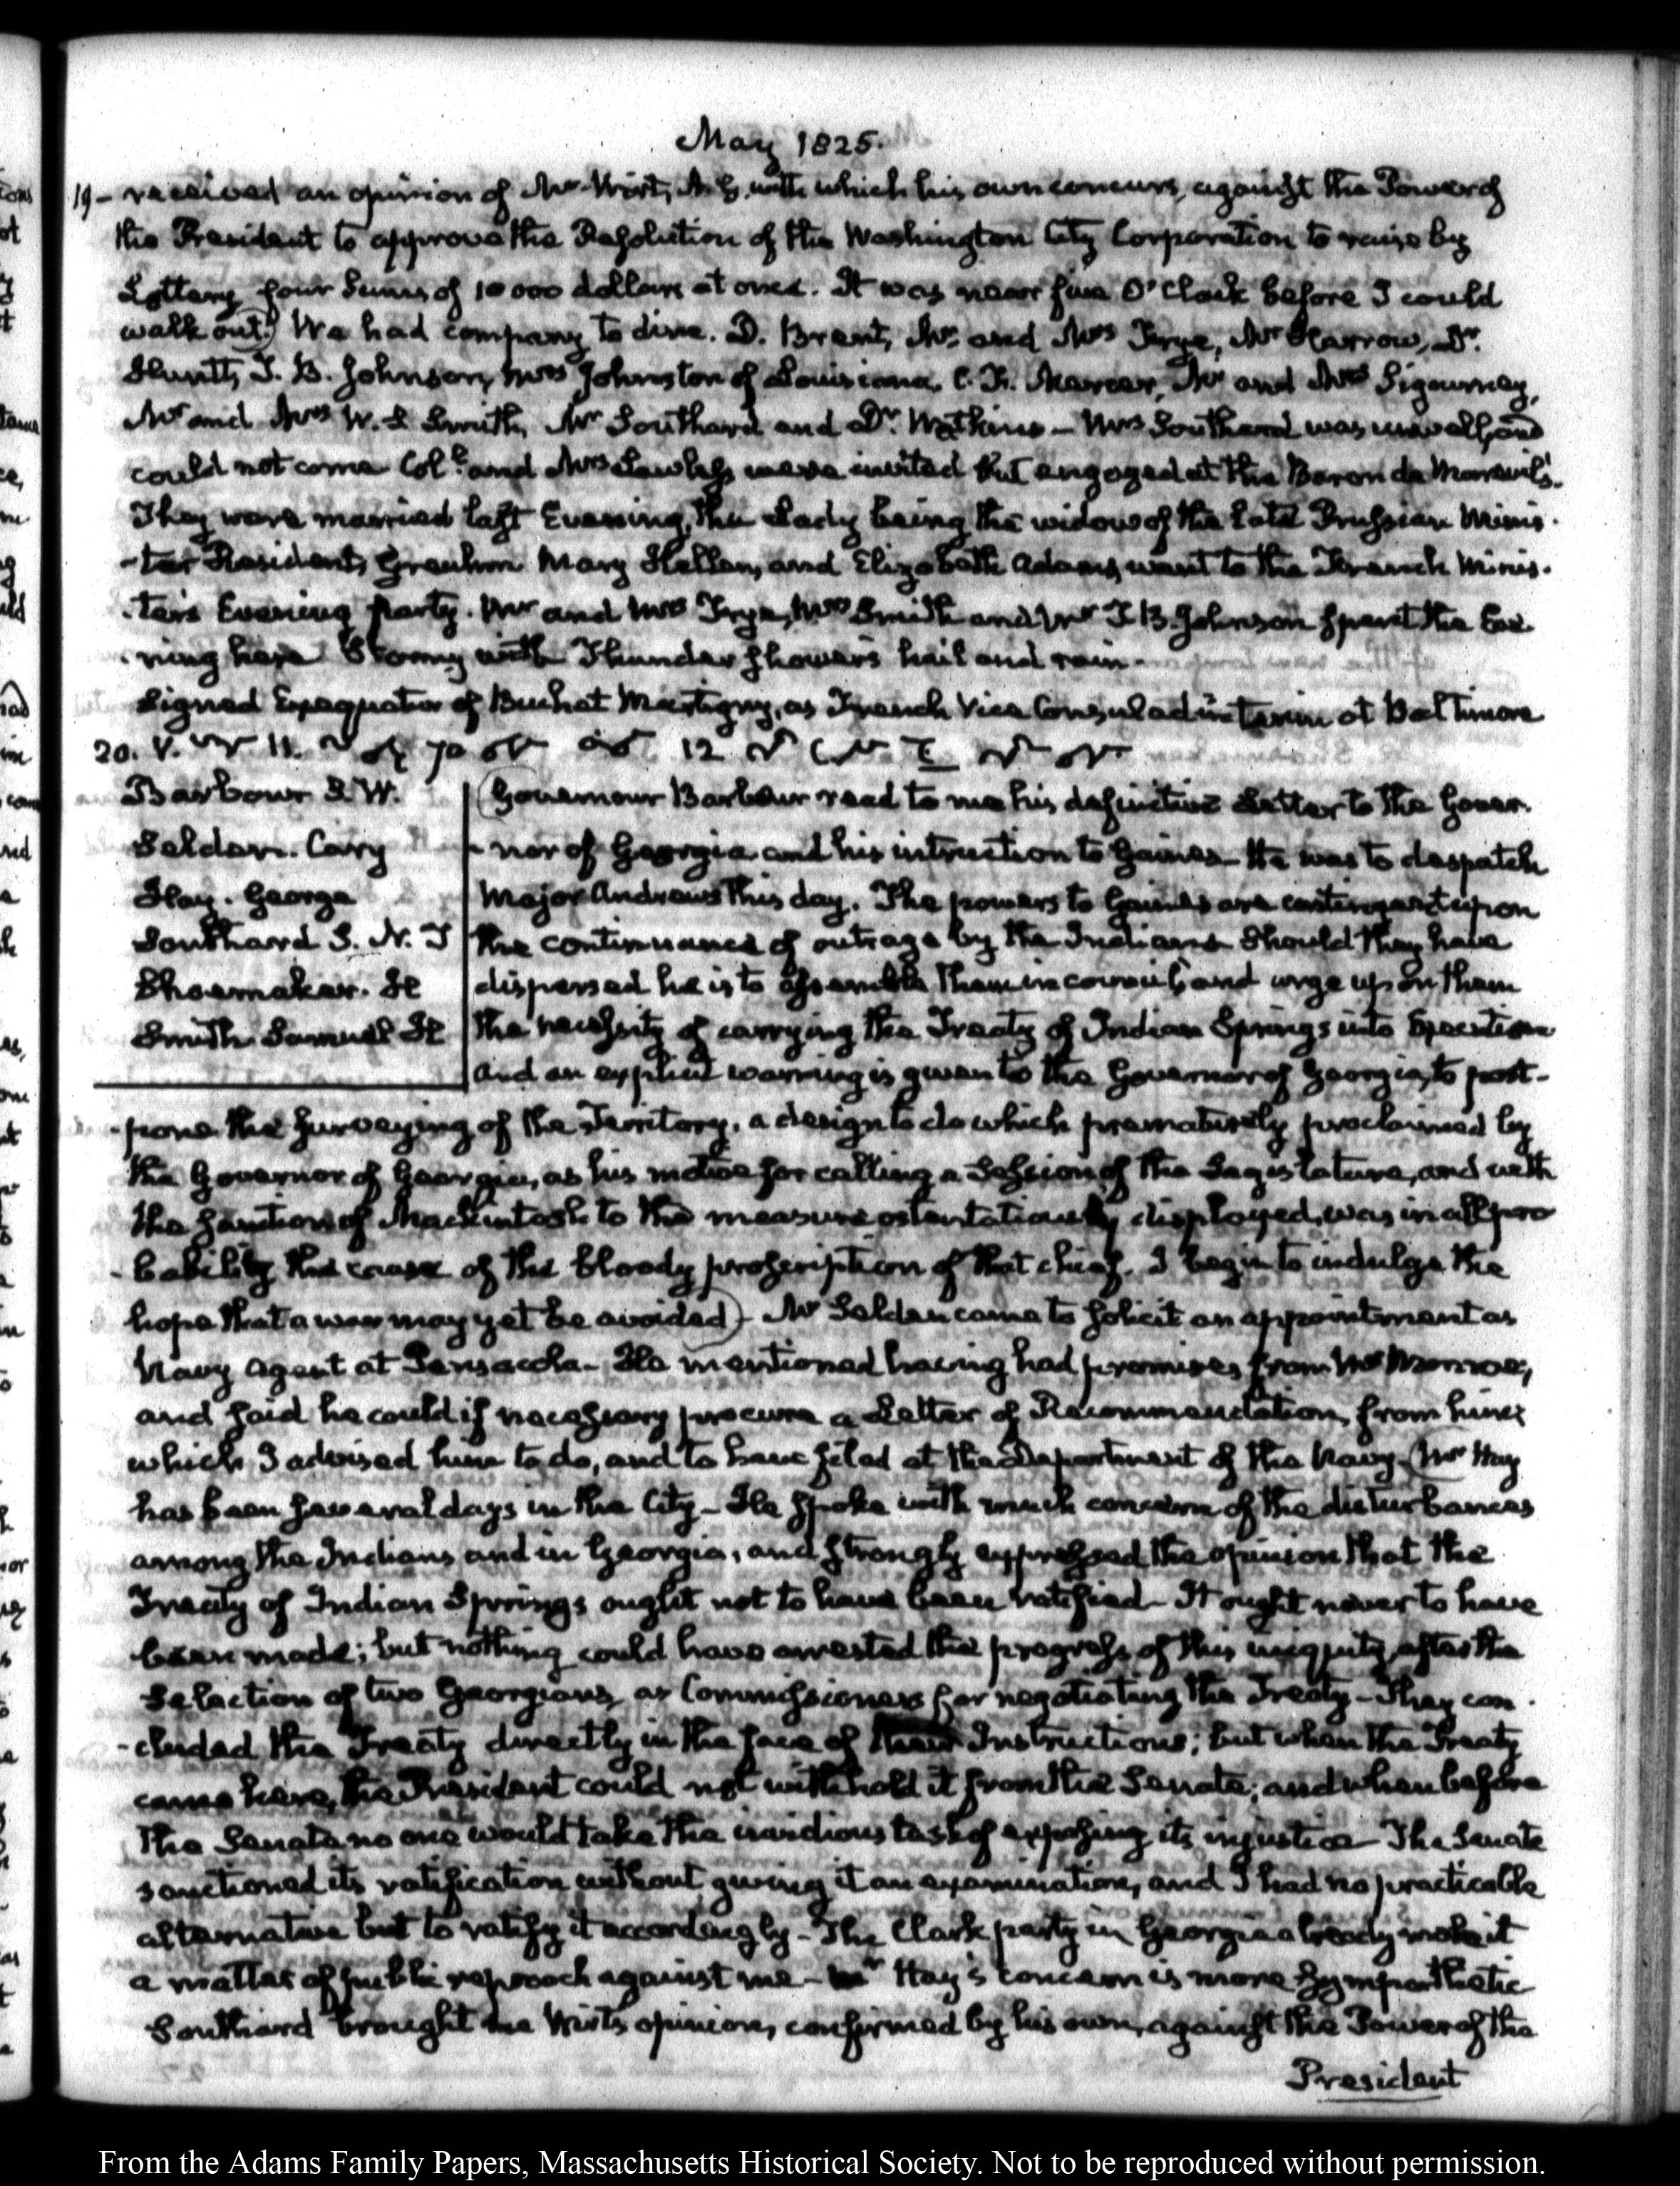 May 1825.
19 - received an opinion of Mr. Wirt, A. G. with which his own concurs, against the Power of
the President to approve the Resolution of the Washington City Corporation to raise by
Lottery four Sums of 10 000 dollars at once. It was near five O'Clock before I could
walk out) We had company to dine. D. Brent, Mr. and Mrs Frye, Mr Harrow, Dr.
Huntt, J. B. Johnson, Mrs Johnston of Louisiana, C. F. Mercer, Mr and Mrs Sigourney,
Mr and Mrs W. S Smith, Mr Southard and Dr. Watkins - Mrs Southard was unwell, and
could not come Coll. and Mrs Lawless were invited but engaged at the Baron de Mareuil's.
They were married last Evening, the Lady being the widow of the late Prussian Minis-
-ter Resident, Greuhm Mary Hellen, and Elizabeth Adams, went to the French Minis-
-ter's Evening party. Mr and Mrs Frye, Mrs Smith and Mr J. B. Johnson spent the Eve
-ning here Stormy with Thunder showers hail and rain.
Signed Exequatur of Buchet Martigny, as French Vice Consul ad interim at Baltimore
20. V. 11. 12
Barbour S. W.
Selden. Cary
Hay. George
Southard S. N. J
Shoemaker.
Smith Samuel
(Governour Barbour read to me his definitive Letter to the Gover-
-nor of Georgia and his intruction to Gaines - He was to despatch
Major Andrews this day. The powers to Gaines are contingent upon
the continuance of outrage by the Indians Should they have
dispersed he is to assemble them in council, and urge upon them
the necessity of carrying the Treaty of Indian Springs into Execution
And an explicit warning is given to the Governor of Georgia, to post-
-pone the surveying of the Territory, a design to do which prematurely proclaimed by
the Governor of Georgia, as his motive for calling a Session of the Legislature, and with
the sanction of Mackintosh to the measure ostentatiously displayed, was in all pro
-bability the cause of the bloody proscription of that chief. I begin to indulge the
hope that a war may yet be avoided) - Mr Selden came to solicit an appointment as
Navy Agent at Pensacola - He mentioned having had promises from Mr Monroe;
and said he could if necessary procure a Letter of Recommendation, from him;
which I advised him to do, and to have filed at the Department of the Navy - (Mr Hay
has been several days in the City - He spoke with much concern of the disturbances
among the Indians and in Georgia, and strongly expressed the opinion that the
Treaty of Indian Springs ought not to have been ratified - It ought never to have
been made; but nothing could have arrested the progress of this iniquity, after the
Selection of two Georgians, as Commissioners for negotiating the Treaty - They con-
-cluded the Treaty directly in the face of their Instructions; but when the Treaty
came here, the President could not withhold it from the Senate; and when before
the Senate no one would take the invidious task of exposing its injustice - The Senate
sanctioned its ratification without giving it an examination, and I had no practicable
alternative but to ratify it accordingly - The Clark party in Georgia already make it
a matter of public reproach against me - Mr Hay's concern is more sympathetic
Southard brought me Wirt's opinion, confirmed by his own, against the Power of the
President
From the Adams Family Papers, Massachusetts Historical Society. Not to be reproduced without permission.